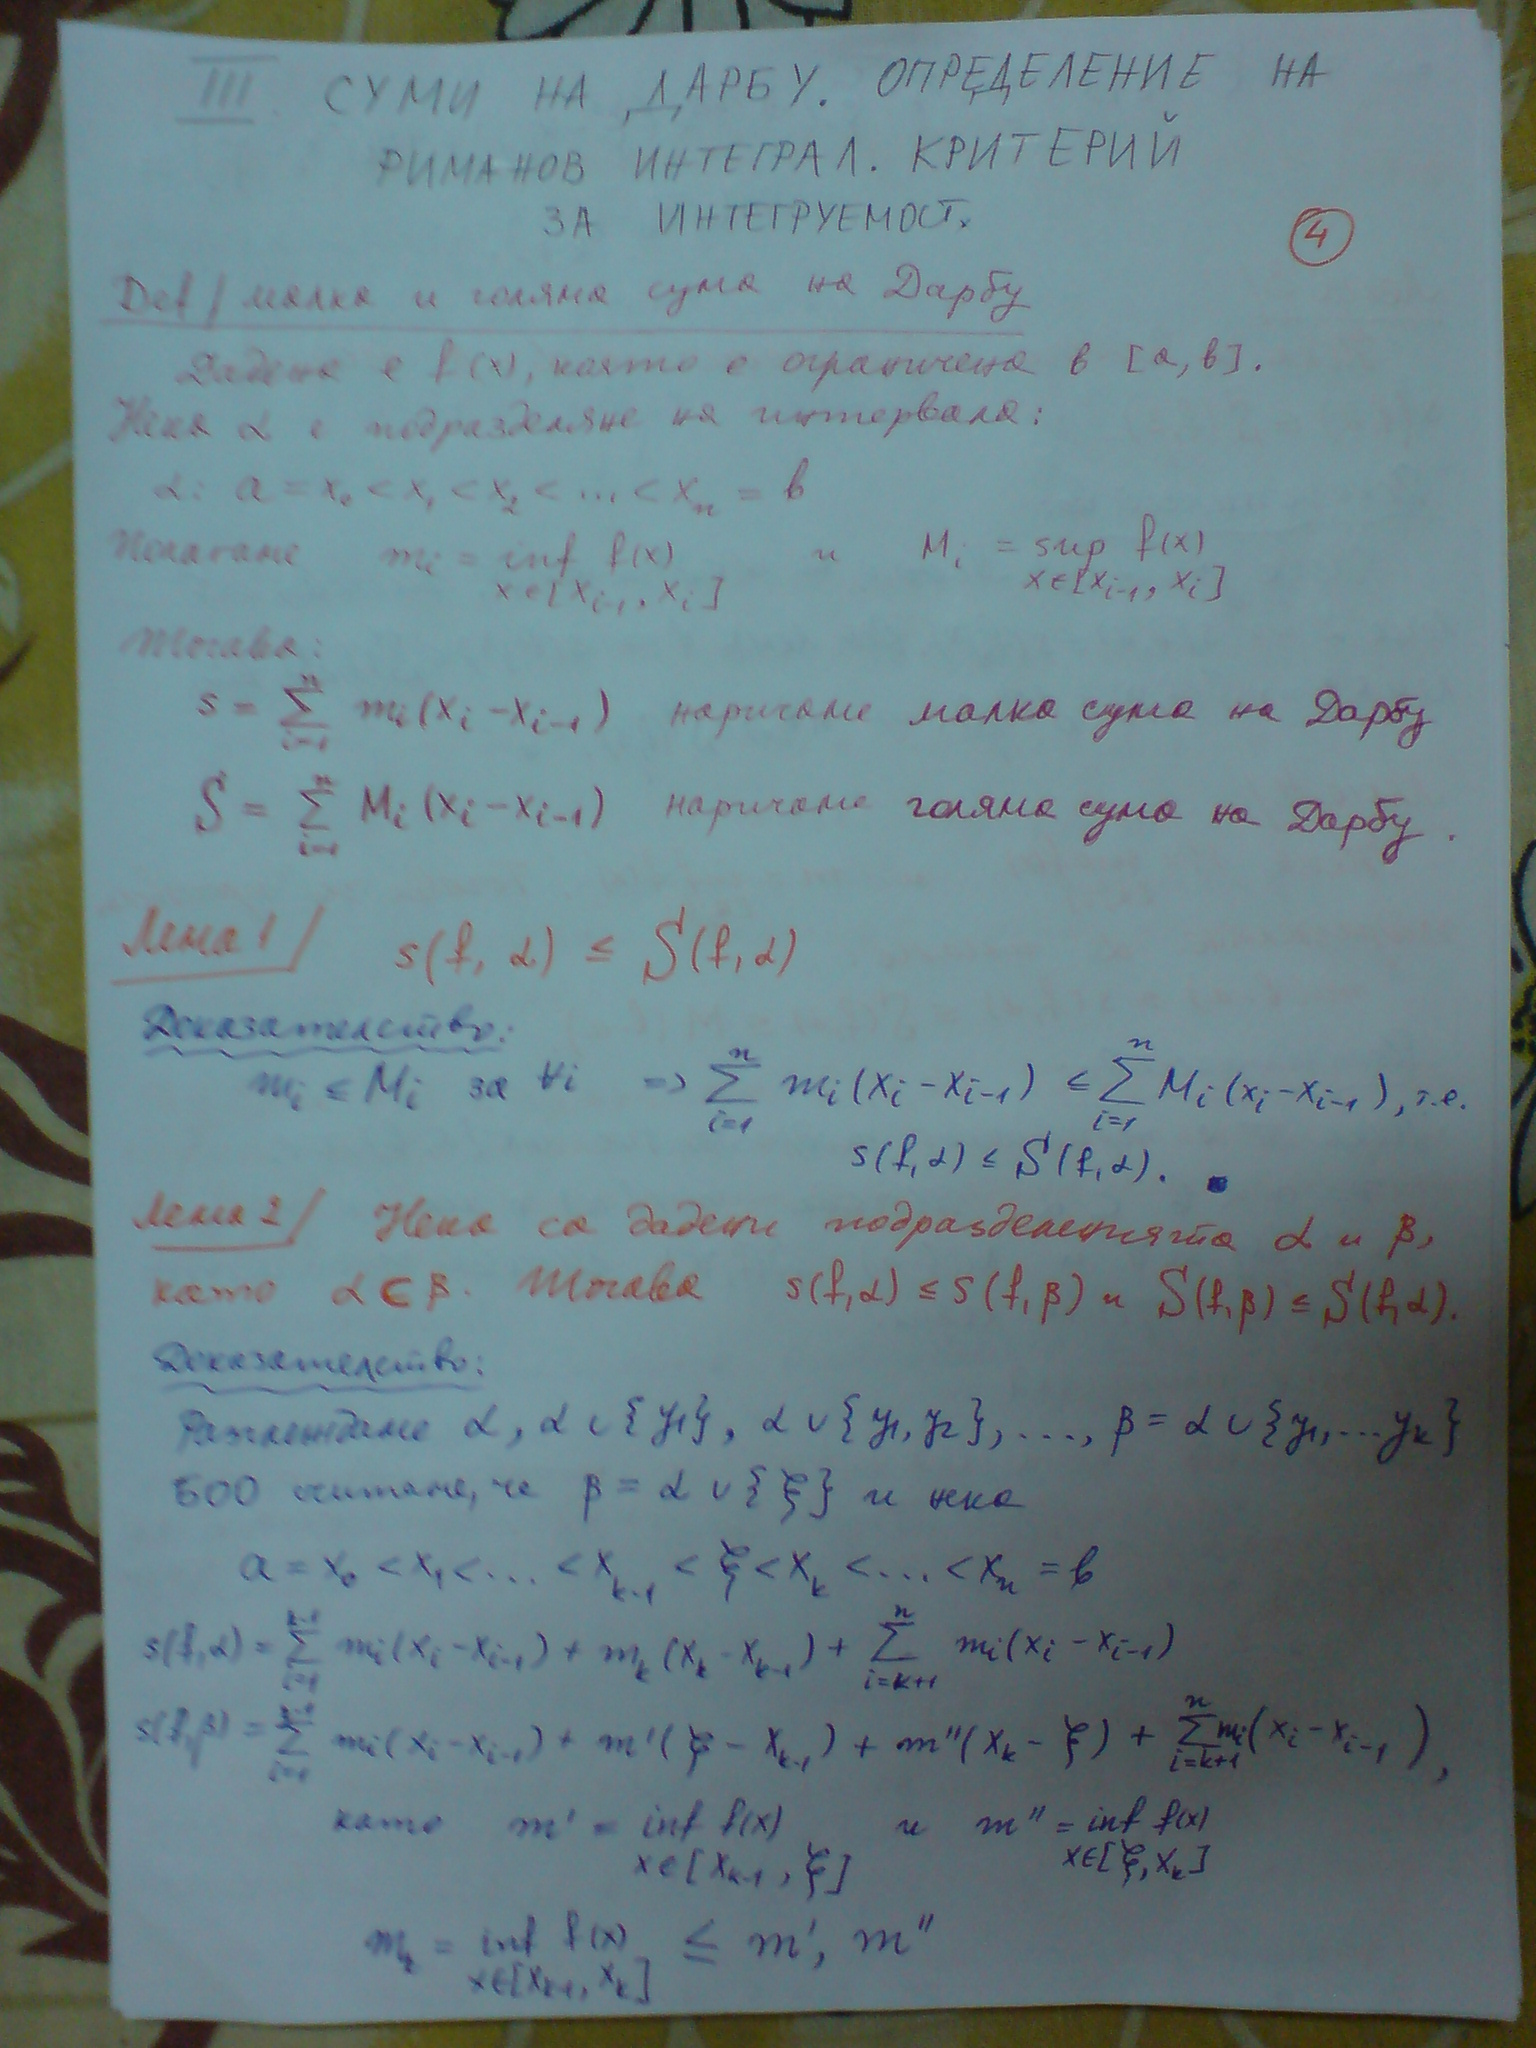 III. СУМИ НА ДАРБУ. ОПРЕДЕЛЕНИЕ НА
РИМАНОВ ИНТЕГРАЛ. КРИТЕРИЙ
ЗА ИНТЕГРУЕМОСТ.
4
Def / малка и голяма сума на Дарбу
Дадена е f(x), която е ограничена в [a, b].
Нека α е подразделяне на интервала:
α: a = x₀ < x₁ < x₂ < ... < xₙ = b
Полагаме mᵢ = inf f(x) и Mᵢ = sup f(x)
x∈[xᵢ₋₁, xᵢ] x∈[xᵢ₋₁, xᵢ]
Тогава:
s = ∑ᵢ₌₁ⁿ mᵢ(xᵢ - xᵢ₋₁) наричаме малка сума на Дарбу
S = ∑ᵢ₌₁ⁿ Mᵢ(xᵢ - xᵢ₋₁) наричаме голяма сума на Дарбу.
Лема 1 / s(f, α) ≤ S(f, α)
Доказателство:
mᵢ ≤ Mᵢ за ∀i => ∑ᵢ₌₁ⁿ mᵢ(xᵢ - xᵢ₋₁) ≤ ∑ᵢ₌₁ⁿ Mᵢ(xᵢ - xᵢ₋₁), т.е.
s(f, α) ≤ S(f, α).
Лема 2 / Нека са дадени подразделенията α и β,
като α ⊂ β. Тогава s(f, α) ≤ s(f, β) и S(f, β) ≤ S(f, α).
Доказателство:
Разглеждаме α, α ∪ {y₁}, α ∪ {y₁, y₂}, ..., β = α ∪ {y₁, ... yₖ}
БОО считаме, че β = α ∪ {ξ} и нека
a = x₀ < x₁ < ... < xₖ₋₁ < ξ < xₖ < ... < xₙ = b
s(f, α) = ∑ᵢ₌₁ᵏ⁻¹ mᵢ(xᵢ - xᵢ₋₁) + mₖ(xₖ - xₖ₋₁) + ∑ᵢ₌ₖ₊₁ⁿ mᵢ(xᵢ - xᵢ₋₁)
s(f, β) = ∑ᵢ₌₁ᵏ⁻¹ mᵢ(xᵢ - xᵢ₋₁) + m'(ξ - xₖ₋₁) + m''(xₖ - ξ) + ∑ᵢ₌ₖ₊₁ⁿ mᵢ(xᵢ - xᵢ₋₁),
като m' = inf f(x) и m'' = inf f(x)
x∈[xₖ₋₁, ξ] x∈[ξ, xₖ]
mₖ = inf f(x) ≤ m', m''
x∈[xₖ₋₁, xₖ]